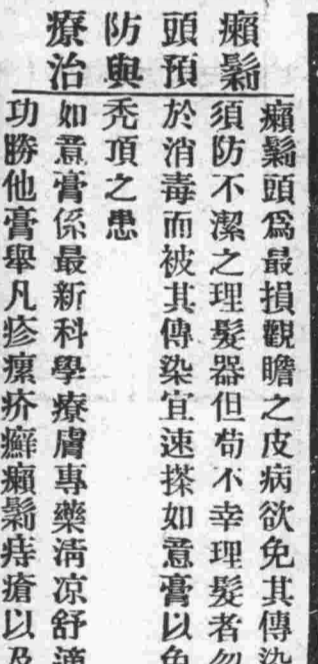 癩鬎
頭預
防與
療治
癩鬎頭爲最損觀瞻之皮病欲免其傳染
須防不潔之理髮器但苟不幸理髮者忽
於消毒而被其傳染宜速搽如意膏以免
禿頂之患
如意膏係最新科學療膚專藥淸凉舒適
功勝他膏舉凡疹瘰疥癬癩鬎痔瘡以及